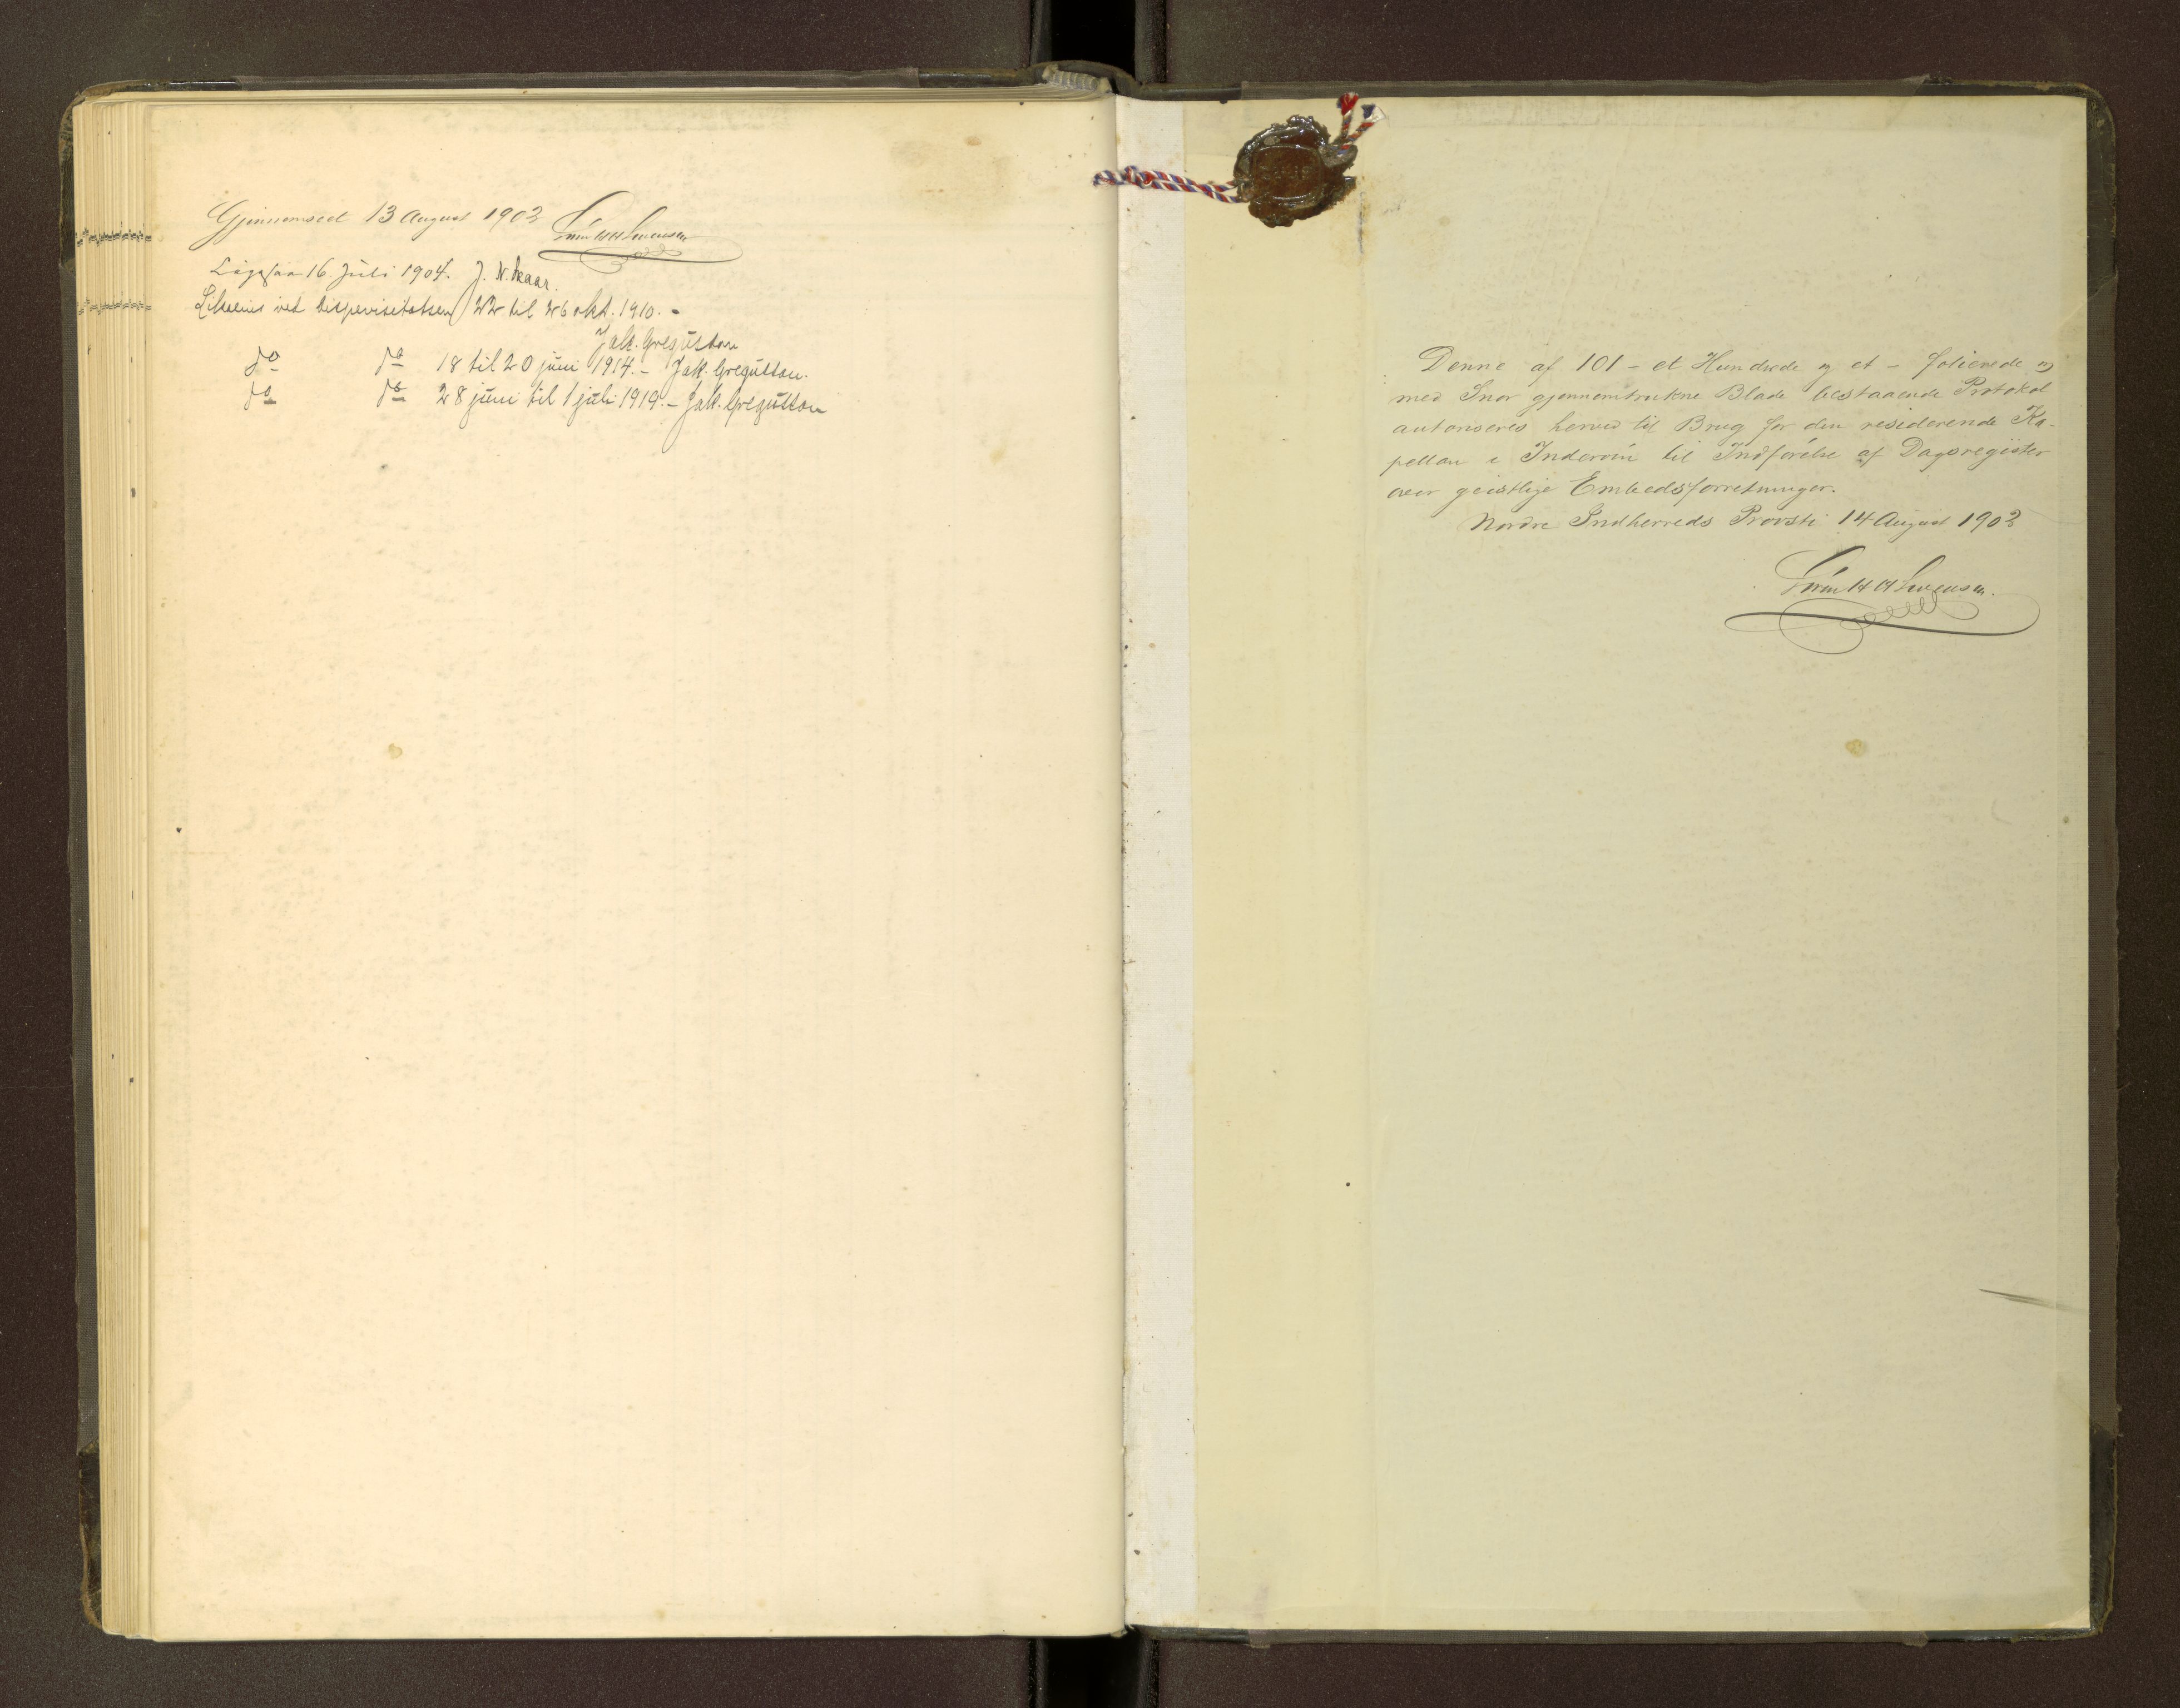 Gjennemseet 13 August 1903
16 Juli 1904. J. N. Skaar.
ved bispevisitatsen 22 til 26 okt. 1910. -
Jak. Gregusson
do do 18 til 20 juni 1914. - Jak. Gregusson.
do do 28 juni til 1 juli 1919. - Jak. Gregusson
Denne af 101 - et Hundrede og et - folierede og
med Snor gjennemtrukne Blade bestaaende Protokol
autoriseres herved til Brug for den residerende Ka-
pellan i Inderøen til Indførelse af Dagsregister
over geistlige Embedsforretninger.
Nordre Indherreds Provsti 14 August 1903